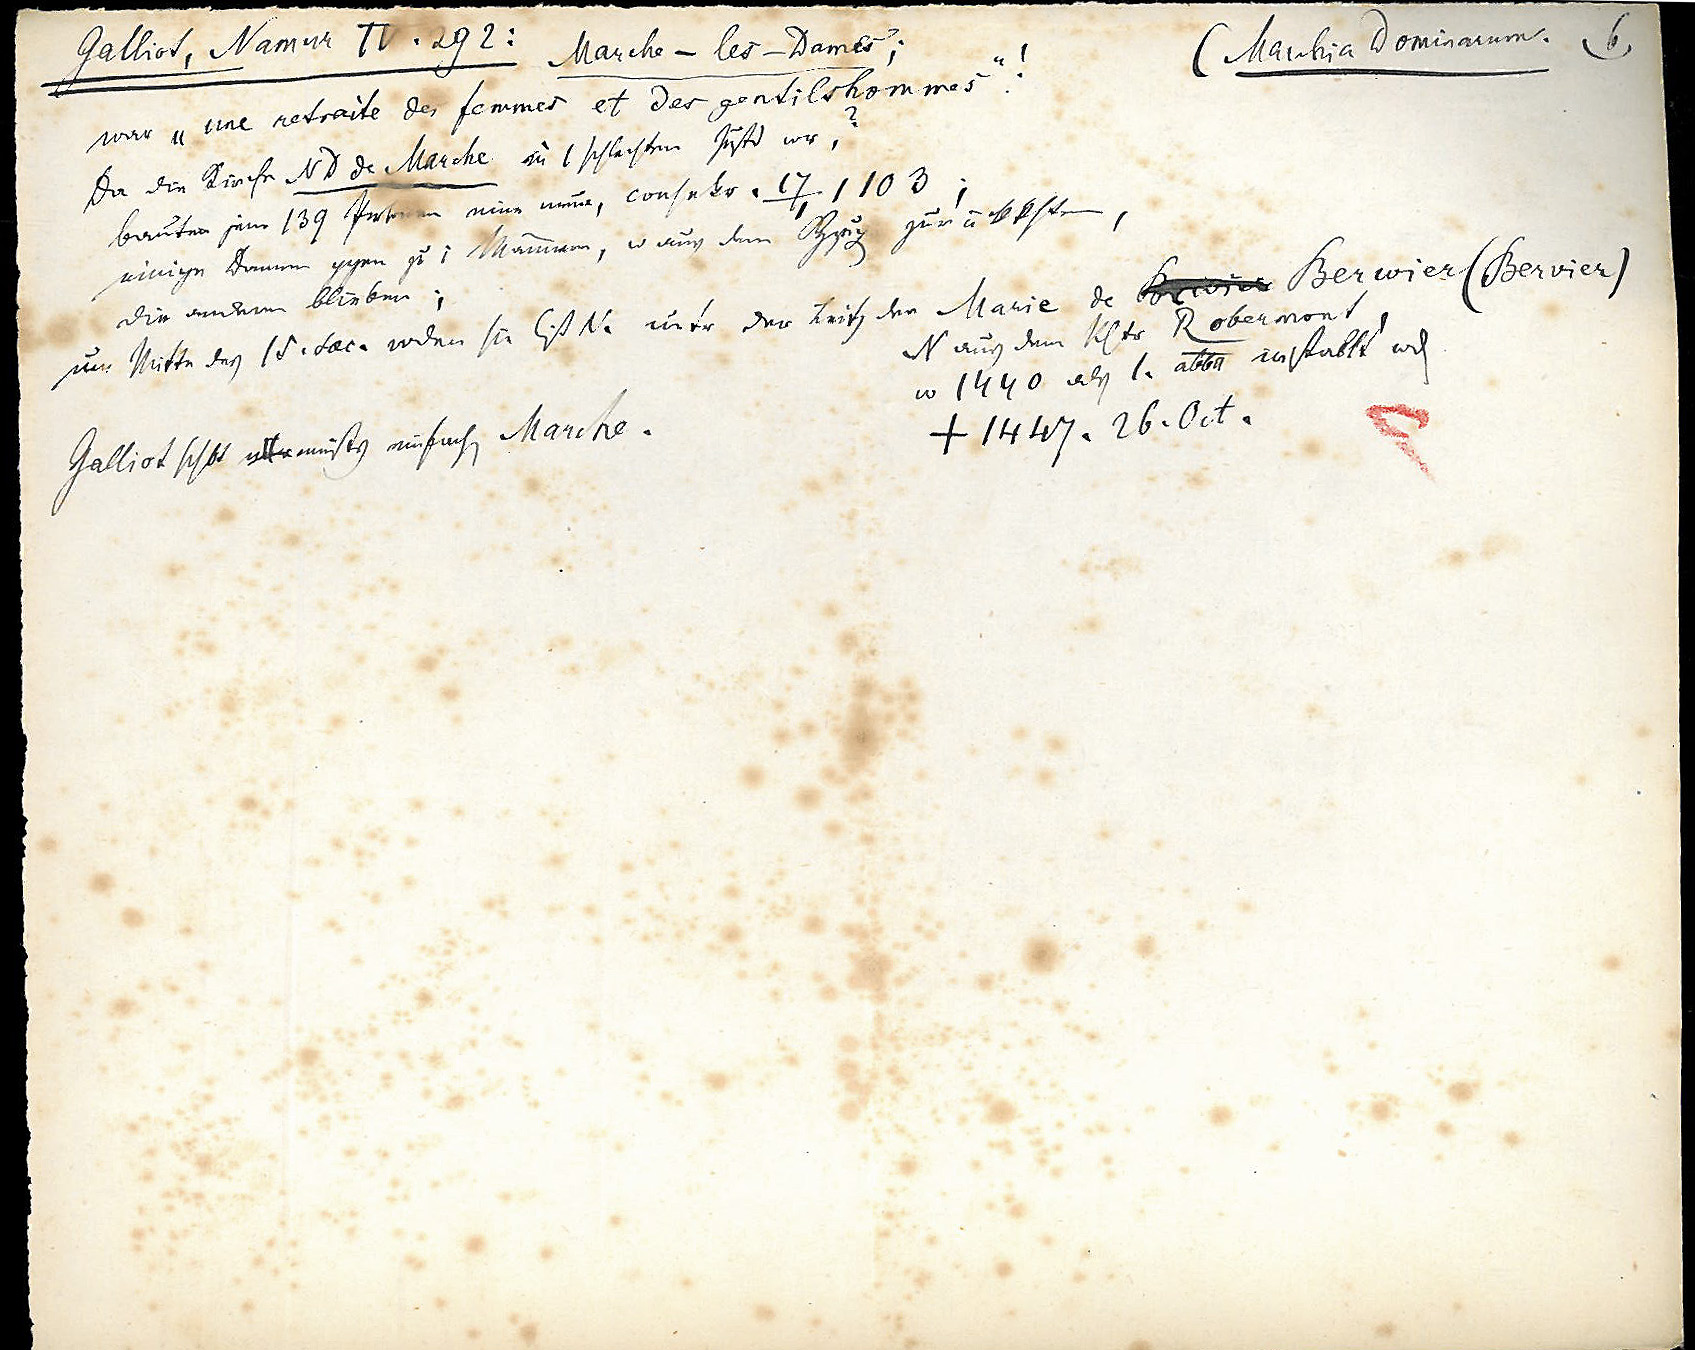 Galliot, Namur IV. 292: Marche-les-Dames; (Marchia Dominarum. 6)
war „une retraite des femmes et des gentilshommes“!
Da die Kirche ND de Marche in 1 schlechten Zustd war,?
bauten jene 139 Personen eine neue, consekr. 17/ 1103;
einige Damen gegen zu i Männern, u aus dem zurückkehrten,
die anderen blieben;
um Mitte des 15. sæc. wden sie Cist N. unter der Leitg der Marie de Berwier (Bervier)
N aus dem Klstr Robermont,
u 1440 als 1. abba installt wd
+ 1447. 26. Oct.
Galliot schbt einfach Marche.